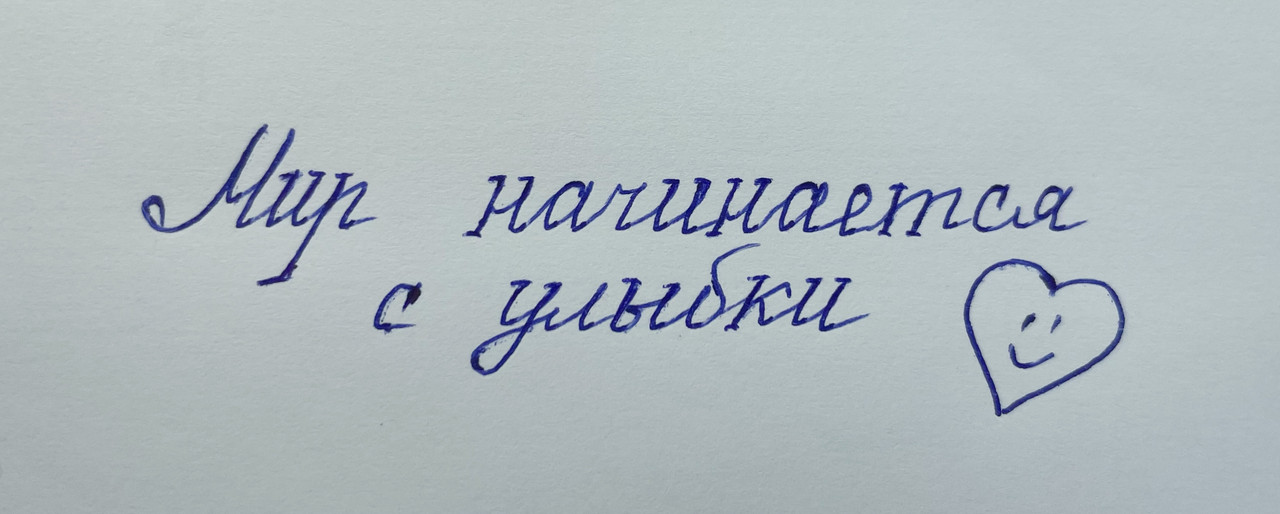 Мир начинается
с улыбки